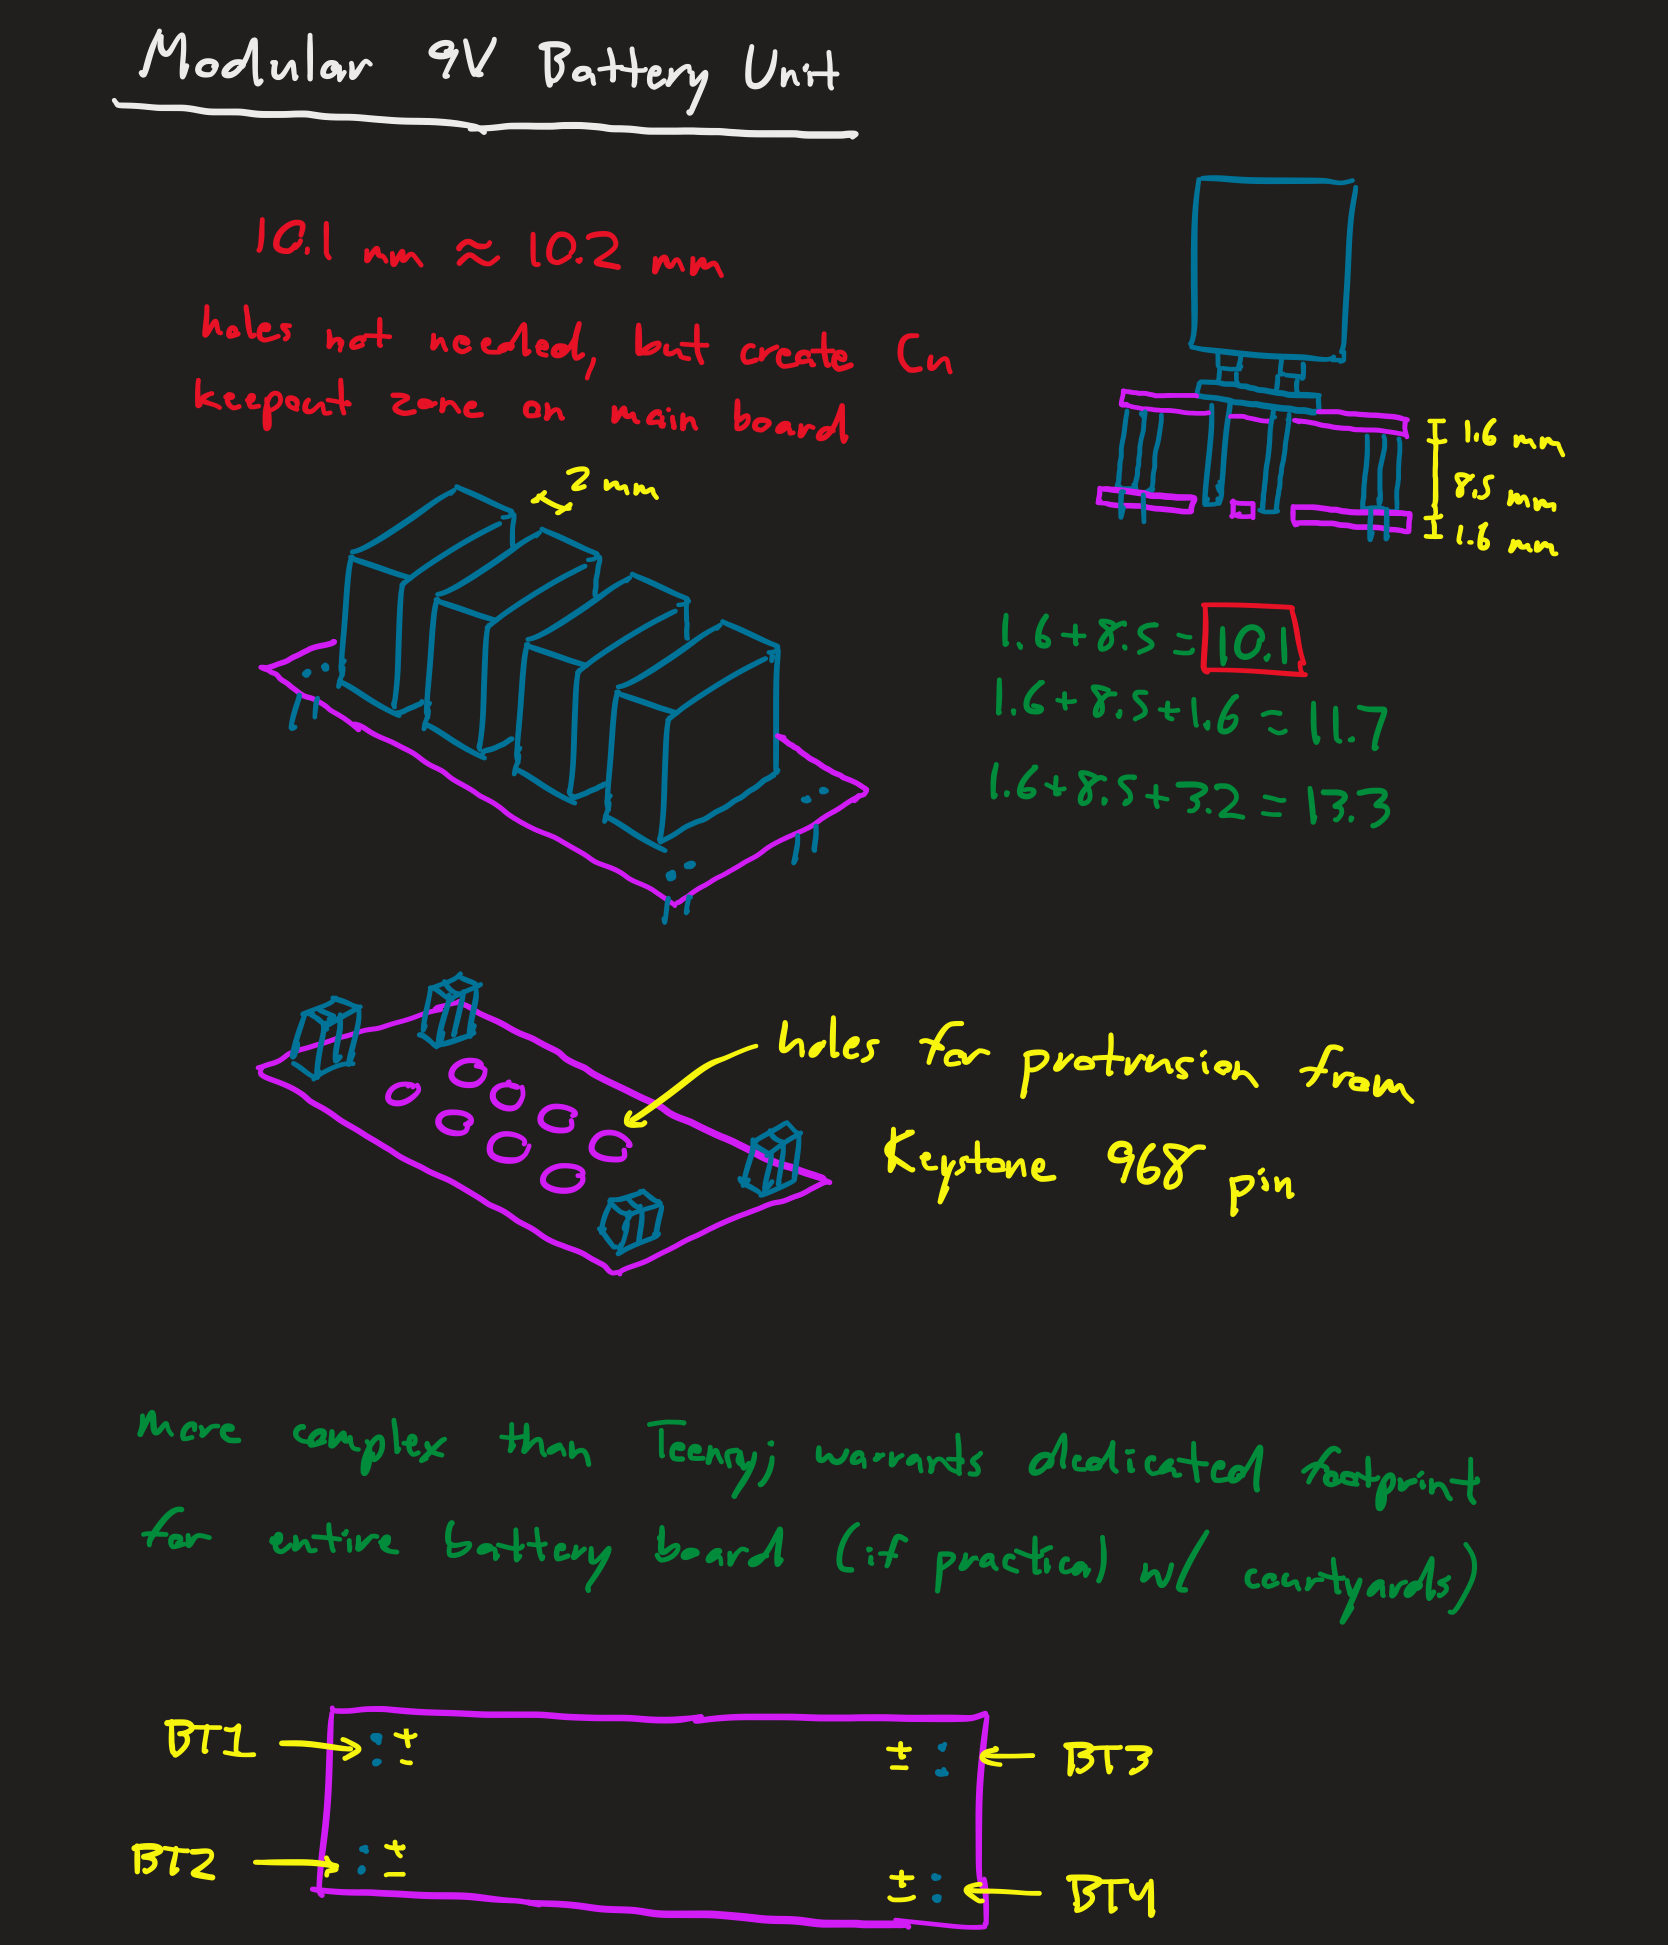 Modular 9V Battery Unit
10.1 mm ≈ 10.2 mm
holes not needed, but create Cu
keepout zone on main board
2 mm
1.6 mm
8.5 mm
1.6 mm
1.6 + 8.5 = 10.1
1.6 + 8.5 + 1.6 = 11.7
1.6 + 8.5 + 3.2 = 13.3
holes for protrusion from
Keystone 968 pin
more complex than Teensy; warrants dedicated footprint
for entire battery board (if practical w/ courtyards)
BT1 + -
± BT3
BT2 + -
± BT4